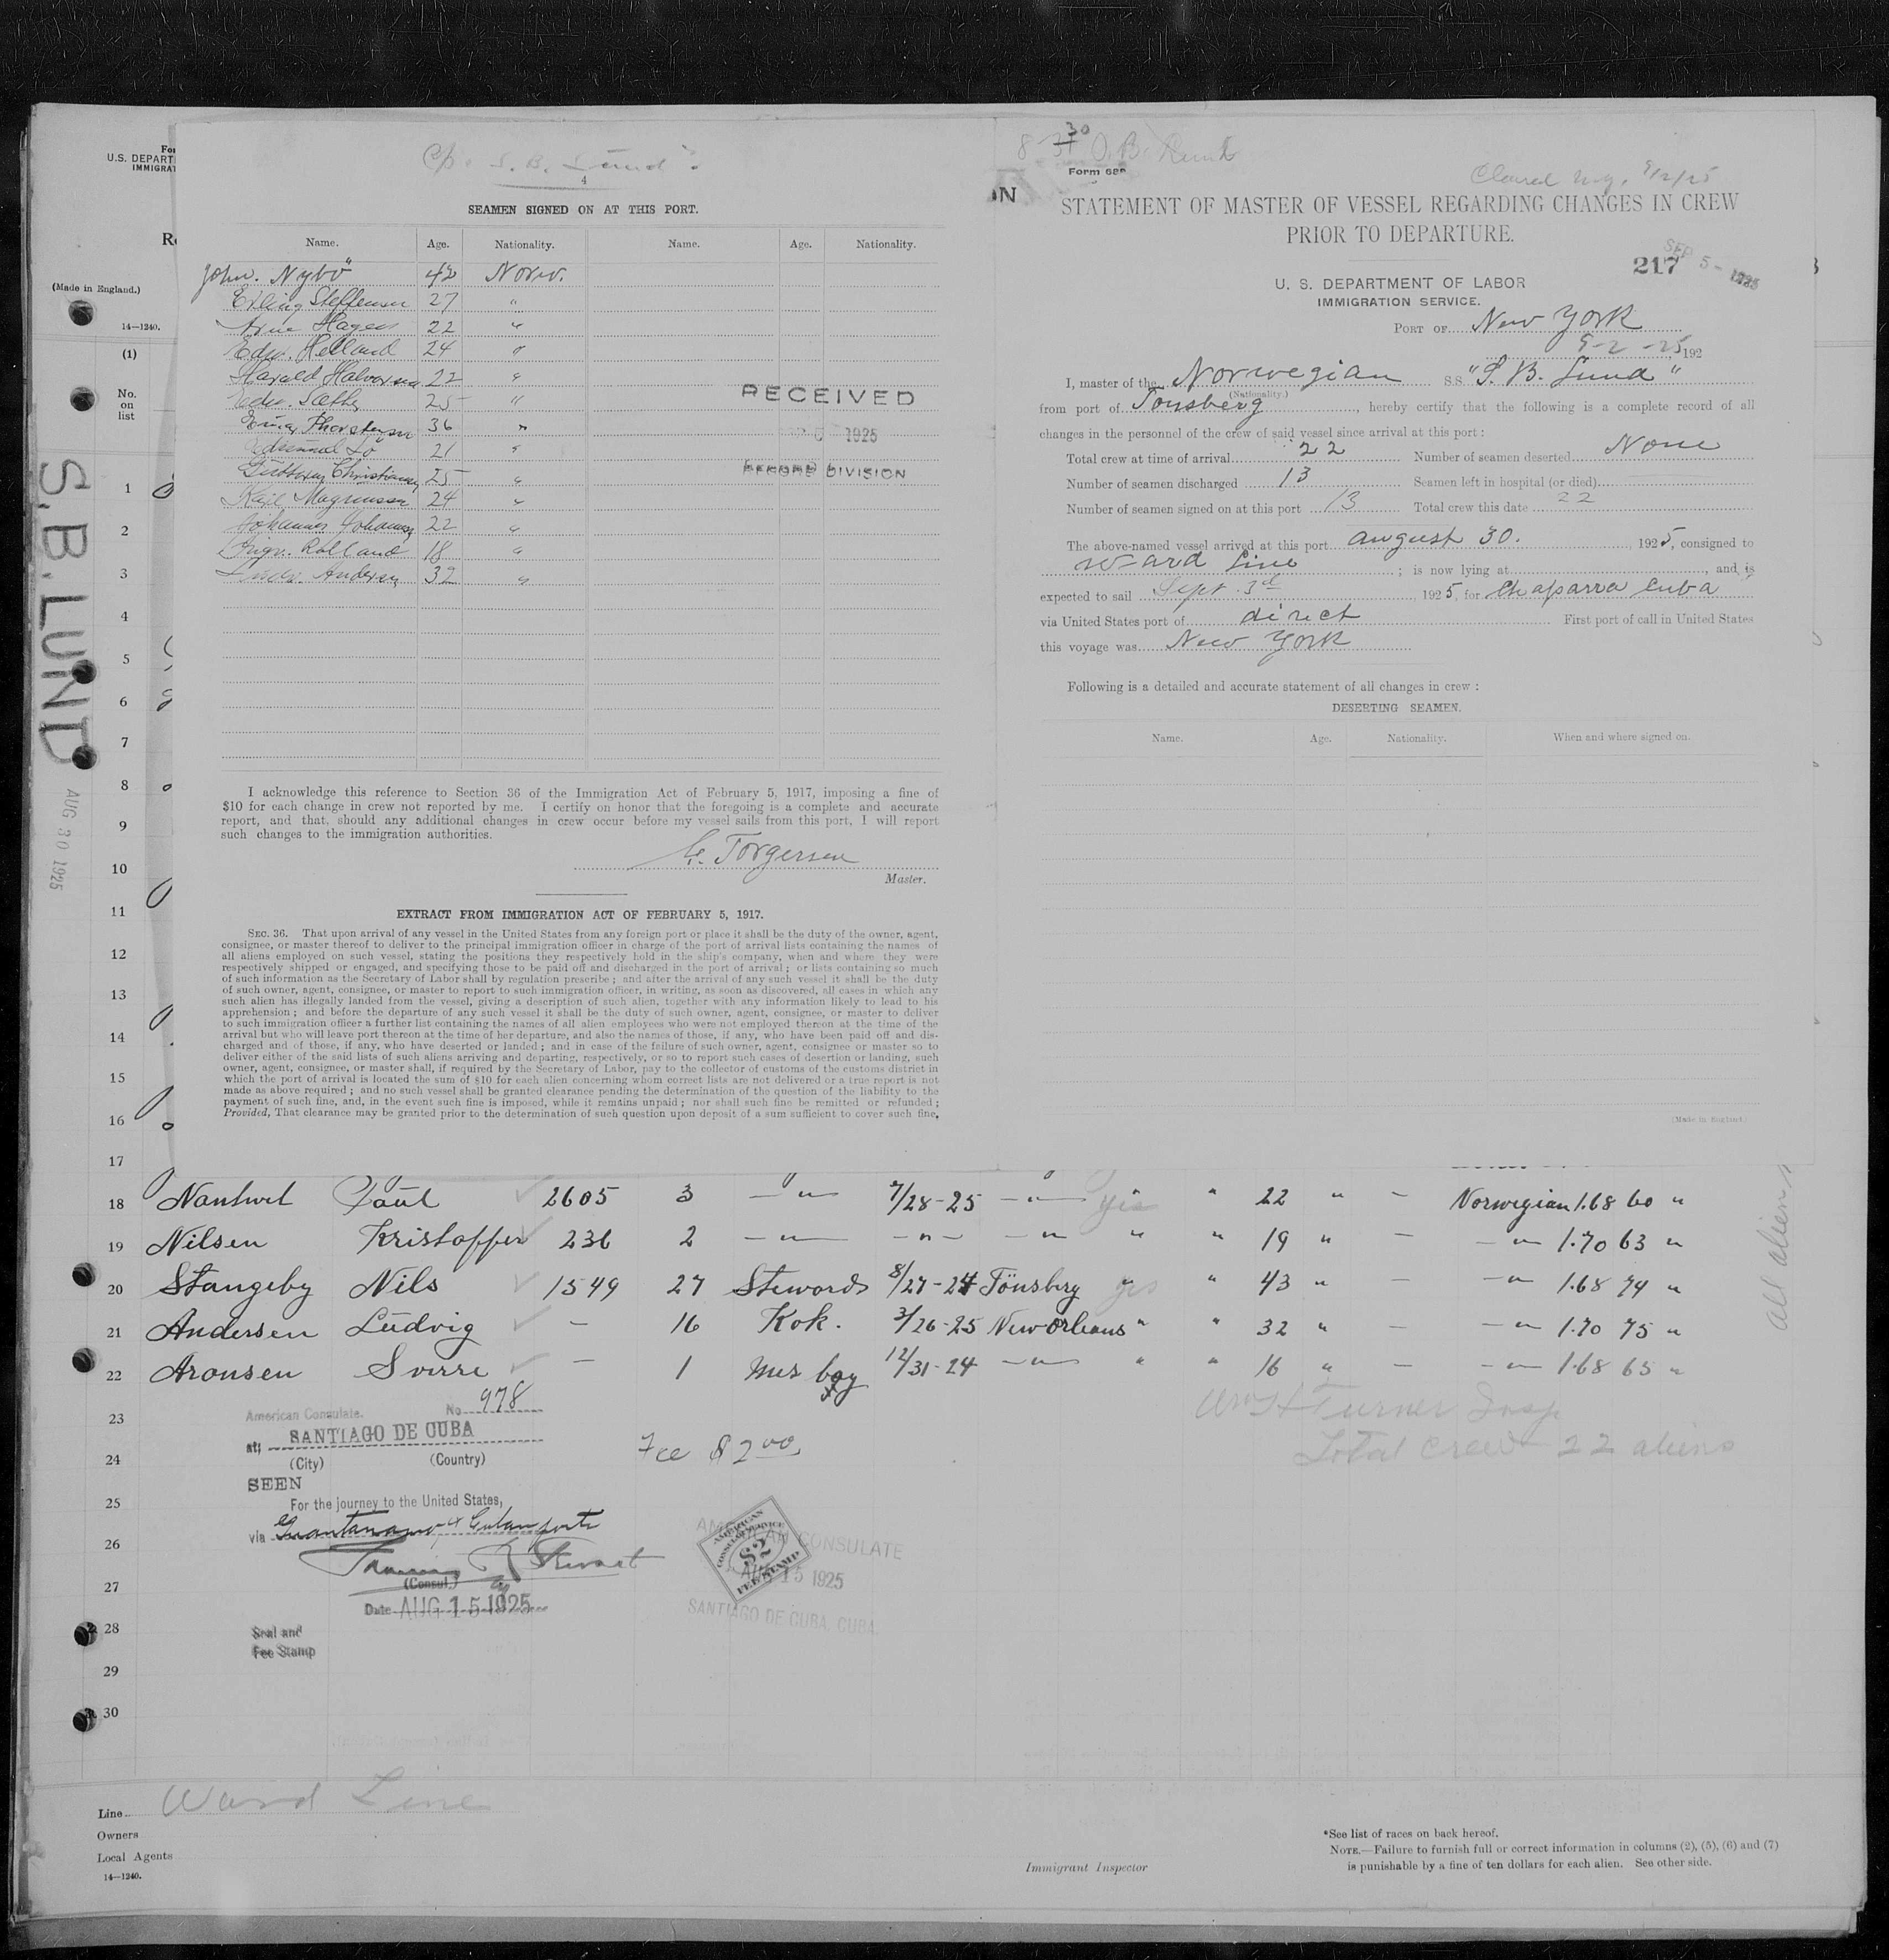 For
U.S. DEPART
IMMIGRAT
(Made in England.)
14—1240.
(1)
No.
on
list
S.B. LUND
AUG 30 1925
1
2
3
4
5
6
7
8
9
10
11
12
13
14
15
16
17
S. B. Lund
4
SEAMEN SIGNED ON AT THIS PORT.
Name. Age. Nationality. Name. Age. Nationality.
John. Nybö 42 Norw.
Erling Steffensen 27 "
Arne Hagen 22 "
Edw. Helland 24 "
Harald Halvorsen 22 "
Edw. Sæthe 25 "
Einar Thorstensen 36 "
21 "
Christiansen 25 "
Karl Magnussen 24 "
Johannes Johannes 22 "
Rolland 18 "
Andersen 32 "
RECEIVED
1925
RECORD DIVISION
I acknowledge this reference to Section 36 of the Immigration Act of February 5, 1917, imposing a fine of
$10 for each change in crew not reported by me. I certify on honor that the foregoing is a complete and accurate
report, and that, should any additional changes in crew occur before my vessel sails from this port, I will report
such changes to the immigration authorities.
G. Torgersen
Master.
EXTRACT FROM IMMIGRATION ACT OF FEBRUARY 5, 1917.
SEC. 36. That upon arrival of any vessel in the United States from any foreign port or place it shall be the duty of the owner, agent,
consignee, or master thereof to deliver to the principal immigration officer in charge of the port of arrival lists containing the names of
all aliens employed on such vessel, stating the positions they respectively hold in the ship's company, when and where they were
respectively shipped or engaged, and specifying those to be paid off and discharged in the port of arrival; or lists containing so much
of such information as the Secretary of Labor shall by regulation prescribe; and after the arrival of any such vessel it shall be the duty
of such owner, agent, consignee, or master to report to such immigration officer, in writing, as soon as discovered, all cases in which any
such alien has illegally landed from the vessel, giving a description of such alien, together with any information likely to lead to his
apprehension; and before the departure of any such vessel it shall be the duty of such owner, agent, consignee, or master to deliver
to such immigration officer a further list containing the names of all alien employees who were not employed thereon at the time of the
arrival but who will leave port thereon at the time of her departure, and also the names of those, if any, who have been paid off and dis-
charged and of those, if any, who have deserted or landed; and in case of the failure of such owner, agent, consignee or master so to
deliver either of the said lists of such aliens arriving and departing, respectively, or so to report such cases of desertion or landing, such
owner, agent, consignee, or master shall, if required by the Secretary of Labor, pay to the collector of customs of the customs district in
which the port of arrival is located the sum of $10 for each alien concerning whom correct lists are not delivered or a true report is not
made as above required; and no such vessel shall be granted clearance pending the determination of the question of the liability to the
payment of such fine, and, in the event such fine is imposed, while it remains unpaid; nor shall such fine be remitted or refunded;
Provided, That clearance may be granted prior to the determination of such question upon deposit of a sum sufficient to cover such fine.
Form 689
Cleared N.Y. 9/2/25
STATEMENT OF MASTER OF VESSEL REGARDING CHANGES IN CREW
PRIOR TO DEPARTURE.
217
SEP 5 - 1925
U. S. DEPARTMENT OF LABOR
IMMIGRATION SERVICE.
PORT OF New York
9-2-25 192
I, master of the Norwegian S.S. "S. B. Lund"
(Nationality.)
from port of Tonsberg, hereby certify that the following is a complete record of all
changes in the personnel of the crew of said vessel since arrival at this port:
Total crew at time of arrival 22 Number of seamen deserted None
Number of seamen discharged 13 Seamen left in hospital (or died)
Number of seamen signed on at this port 13 Total crew this date 22
The above-named vessel arrived at this port august 30. , 1925, consigned to
Ward Line ; is now lying at , and is
expected to sail Sept. 3d , 1925, for Chaparra Cuba
via United States port of direct First port of call in United States
this voyage was New York
Following is a detailed and accurate statement of all changes in crew:
DESERTING SEAMEN.
Name. Age. Nationality. When and where signed on.
(Made in England)
all aliens
18 Nantwet Paul 2605 3 —"— 7/28-25 —"— yes " 22 " — Norwegian 1.68 60 "
19 Nilsen Kristoffer 236 2 —"— —"— —"— " " 19 " — —"— 1.70 63 "
20 Stangeby Nils 1549 27 Stewords 8/27-24 Tönsberg yes " 43 " — —"— 1.68 74 "
21 Andersen Ludvig — 16 Kok. 3/26-25 New Orleans " " 32 " — —"— 1.70 75 "
22 Aronsen Sverre — 1 Mes boy 12/31-24 —"— " " 16 " — —"— 1.68 65 "
23
24
25
26
27
28
29
30
American Consulate. No. 978
at; SANTIAGO DE CUBA
(City) (Country)
SEEN
For the journey to the United States,
via Guantanamo & Cuban ports
(Consul.)
Date AUG 15 1925
Seal and
Fee Stamp
Fee $2.00
AMERICAN CONSULATE
AUG 15 1925
SANTIAGO DE CUBA, CUBA.
AMERICAN
CONSULAR SERVICE
$2
FEE STAMP
Wm H Turner Insp
Total crew 22 aliens
Line Ward Line
Owners
Local Agents
14—1240.
Immigrant Inspector
*See list of races on back hereof.
NOTE.—Failure to furnish full or correct information in columns (2), (5), (6) and (7)
is punishable by a fine of ten dollars for each alien. See other side.